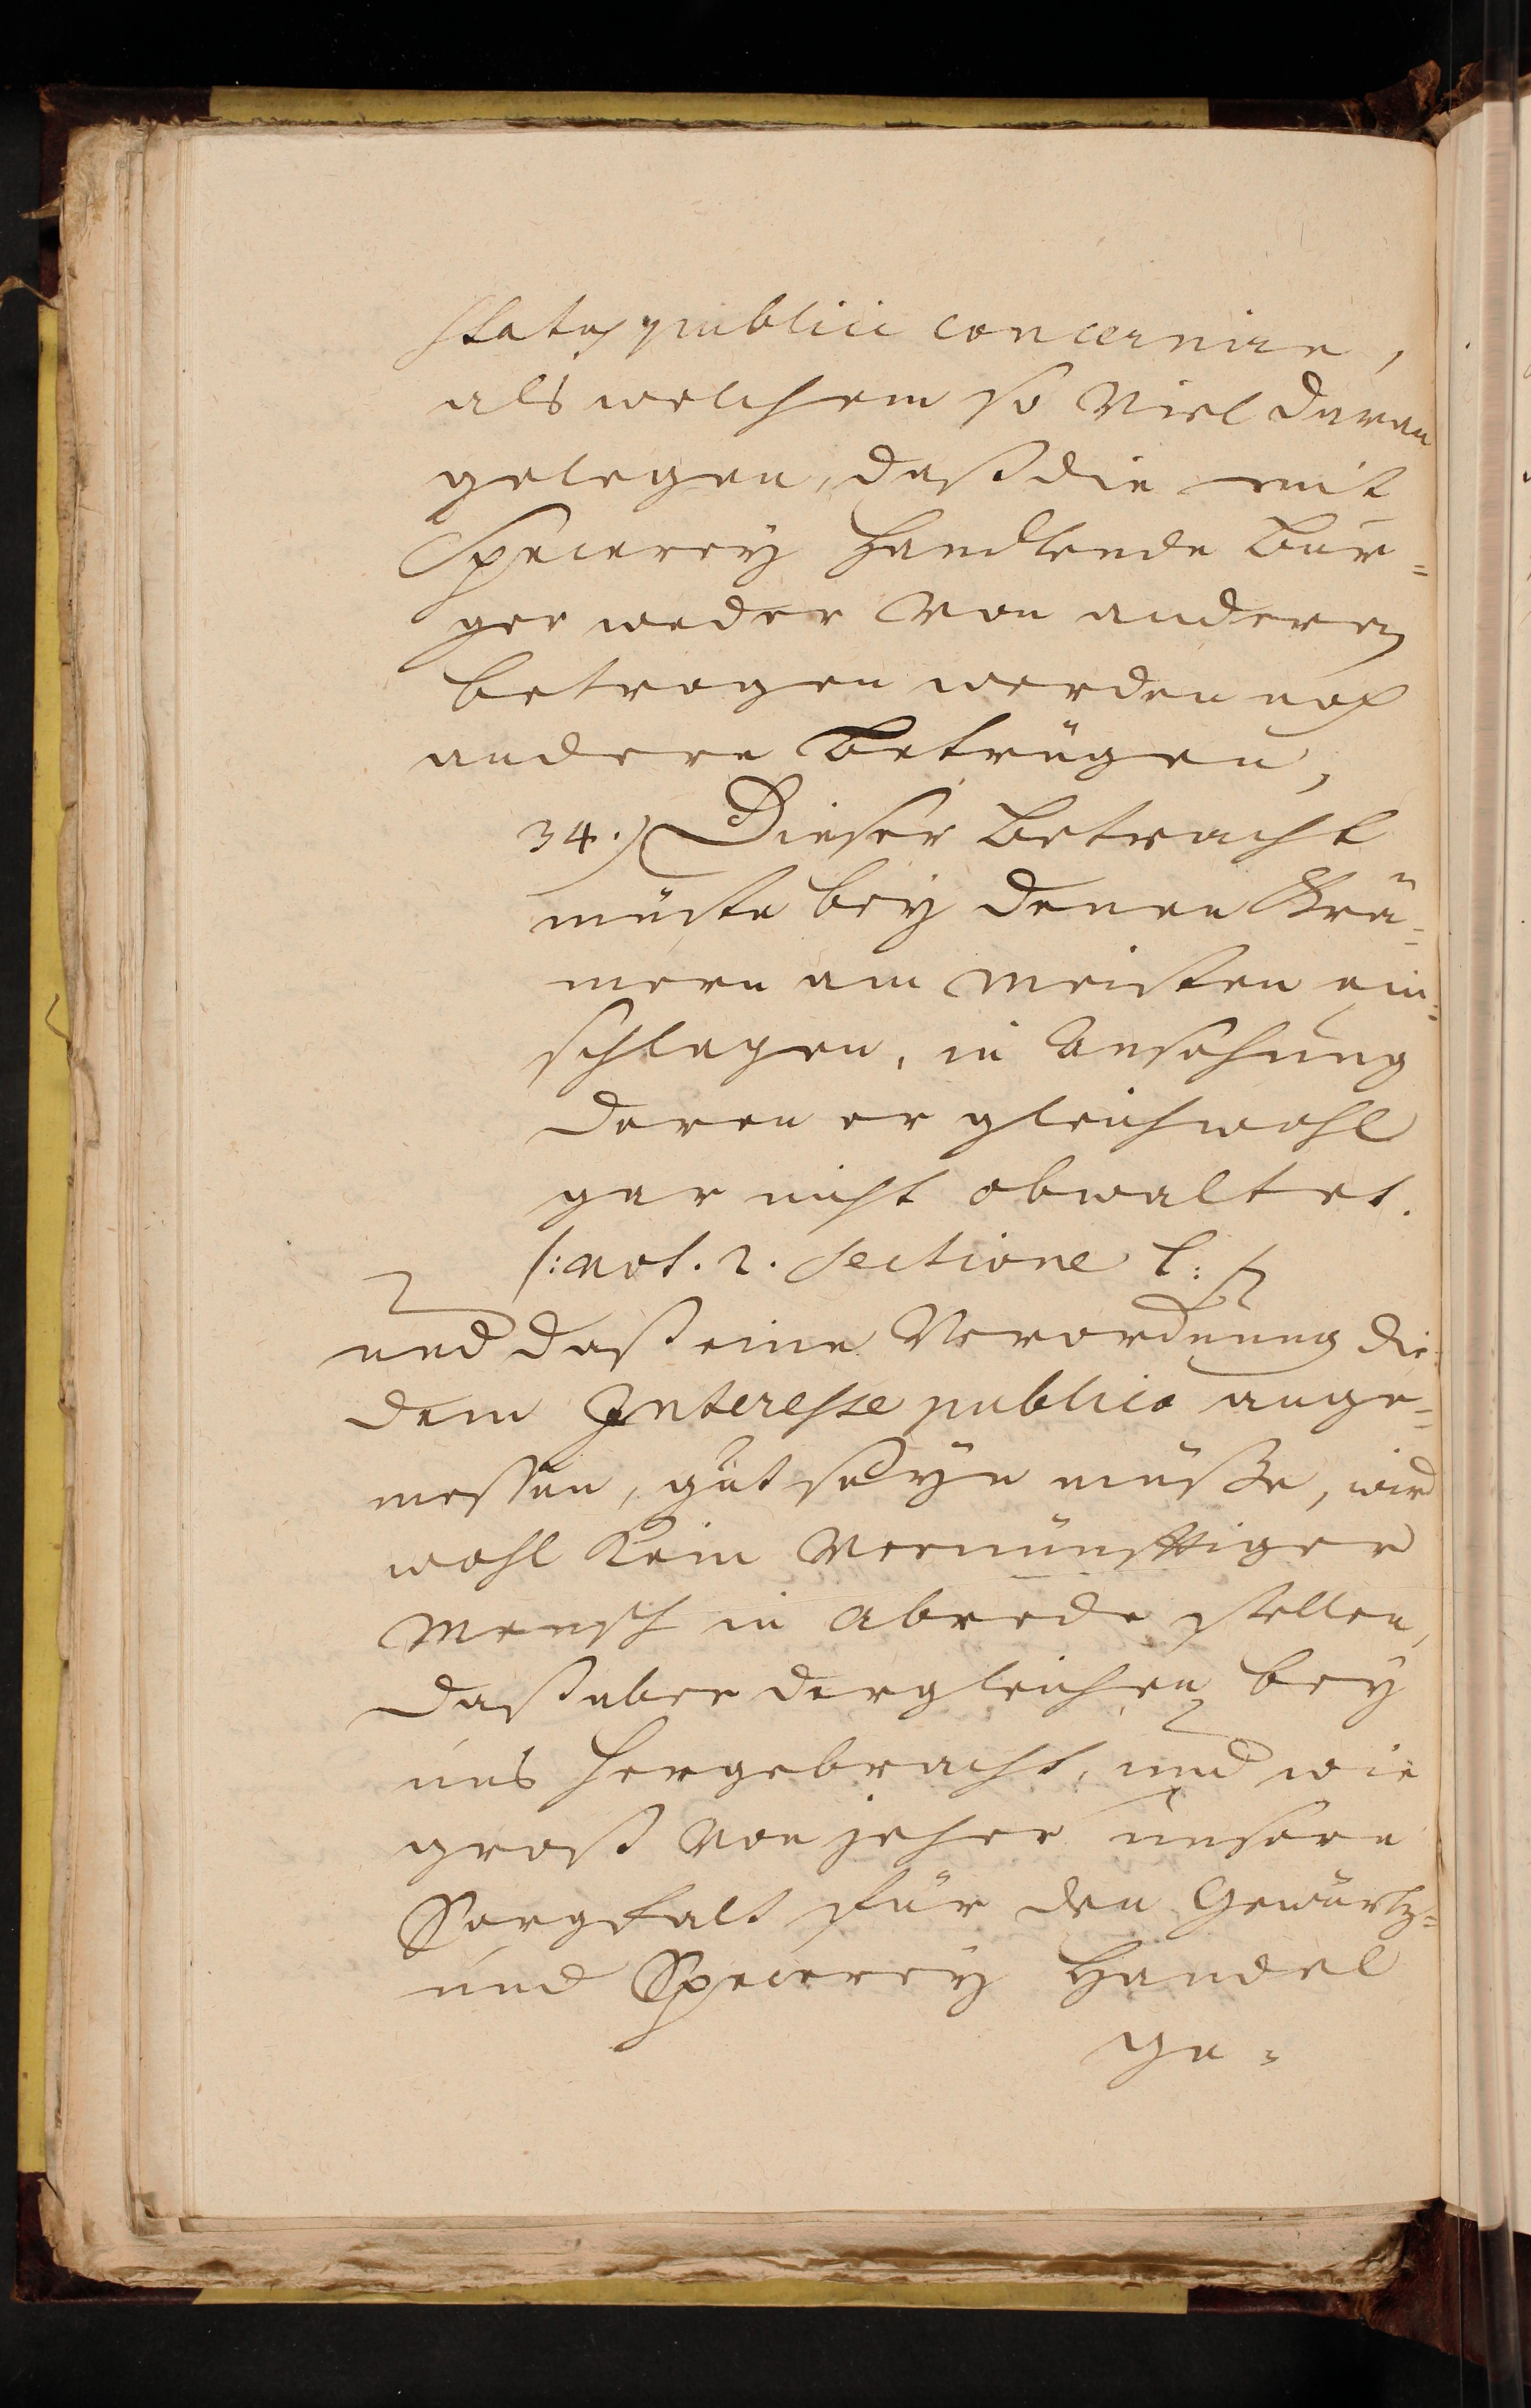 status publici concernire,
als welchem so viel daran
gelegen, daß die mit
Specerey handlende Bur=
ger weder von anderen
betrogen werden noch
andere betrügen,
34.) Dieser Betracht
müste bey denen Krä=
mern am meisten ein=
schlagen, in Ansehung
deren er gleichwohl
gar nicht obwaltet.
/: vot. 2. sectione C: /
und daß eine Verordnung die
dem Interesse publico ange=
messen, gut seyn müße, wird
wohl kein vernünfftiger
Mensch in abrede stellen,
daß aber dergleichen bey
uns hergebracht, und wie
groß von jeher unsere
Sorgfalt für den Gewürtz=
und Specerey Handel
ge=